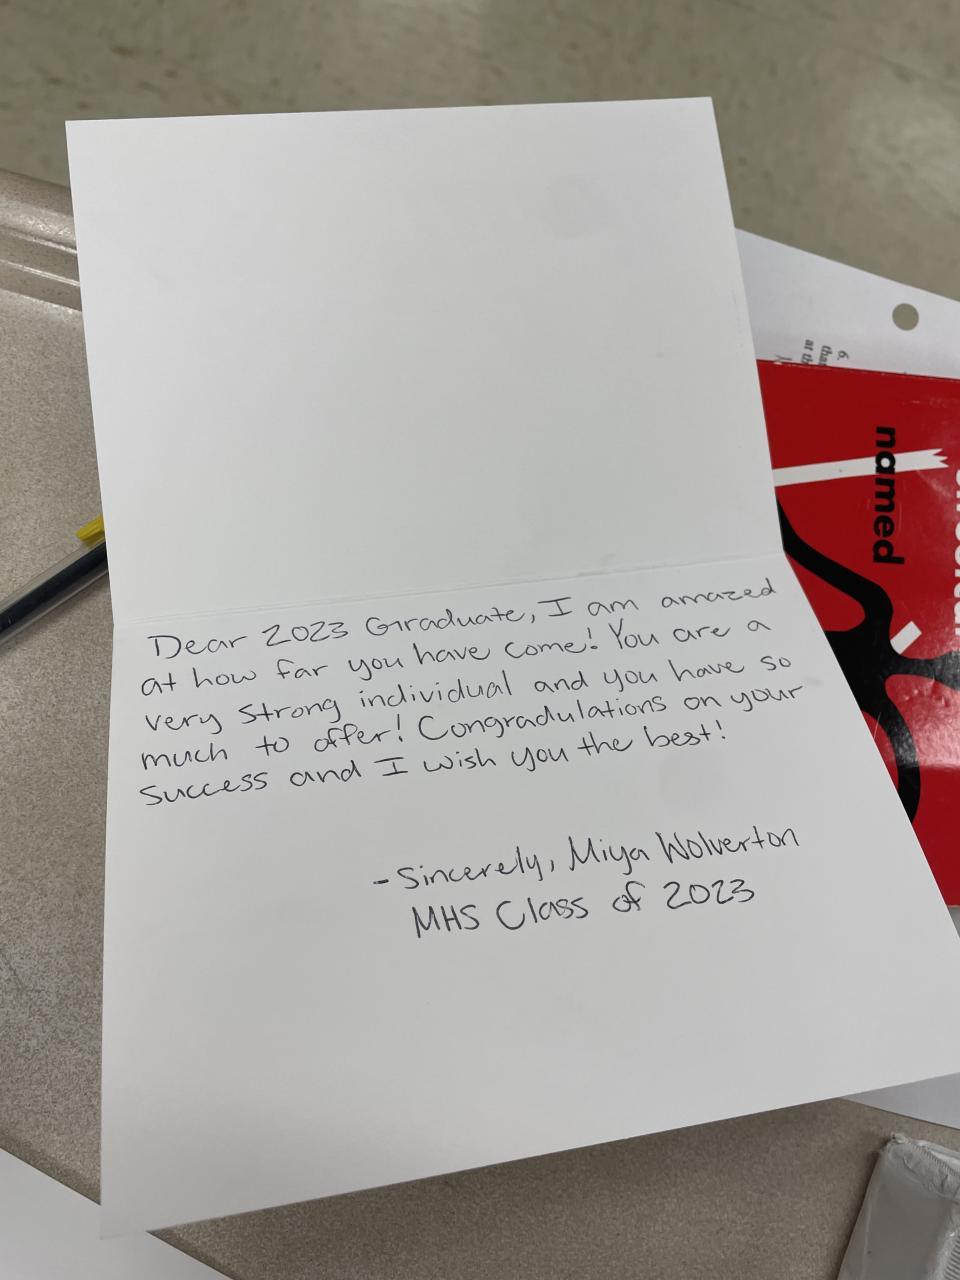 Dear 2023 Graduate, I am amazed
at how far you have come! You are a
very strong individual and you have so
much to offer! Congradulations on your
success and I wish you the best!
- Sincerely, Miya Wolverton
MHS Class of 2023
6.
named